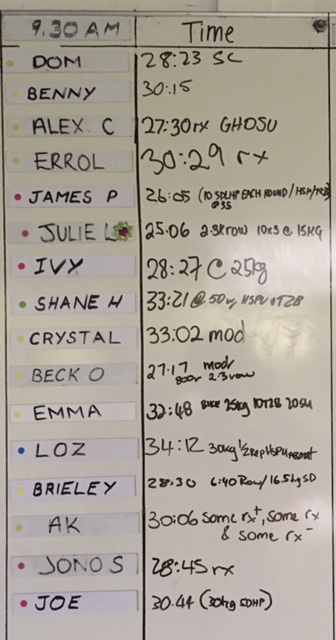 9.30 AM Time
DOM 28:23 SC
BENNY 30:15
ALEX. C 27:30 rx GHDSU
ERROL 30:29 rx
JAMES P 26:05 (10 SDLHP EACH ROUND/HSPU/
@35
JULIE L 25.06 2.3K ROW 10x3 @ 15KG
IVY 28:27 @ 25kg
SHANE H 33:21 @ 50 HSPU T2B
CRYSTAL 33:02 mod
BECK O 27:17 mod
800r 2.3row
EMMA 32:48 25kg 10T2B 20SU
LOZ 34:12 30kg 1/2 rep HSPU
BRIELEY 28:30 6:40 Row/16.5kg SD
AK 30:06 some rx+, some rx
& some rx-
JONO S 28:45 rx
JOE 30.44 (30kg SDHP)